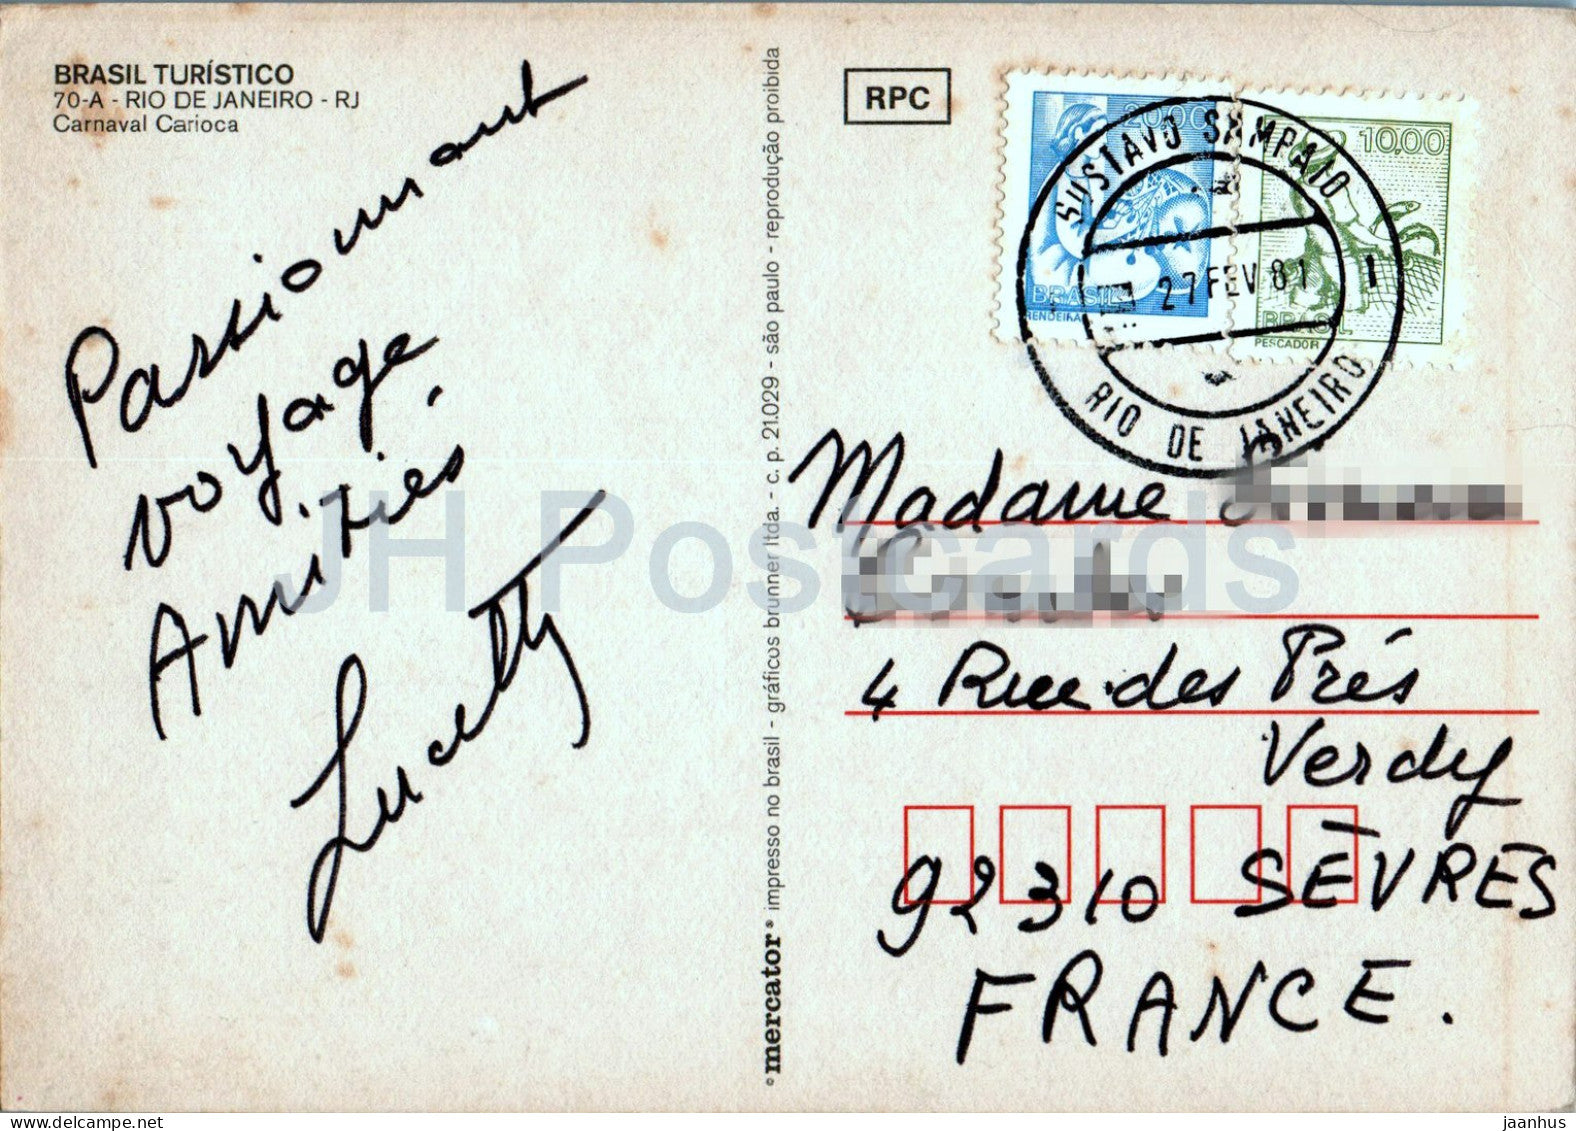 BRASIL TURÍSTICO
70-A - RIO DE JANEIRO - RJ
Carnaval Carioca
Passionnant
voyage
Amitiés.
Lucetty
mercator® impresso no brasil - gráficos brunner ltda. - c. p. 21.029 - são paulo - reprodução proibida
RPC
20,00
BRASIL
RENDEIRA
10,00
BRASIL
PESCADOR
GUSTAVO SAMPAIO
27 FEV 81
RIO DE JANEIRO
Madame
4 Rue des Prés
Verdy
92310 SÈVRES
FRANCE.
JH Postcards
jaanhus